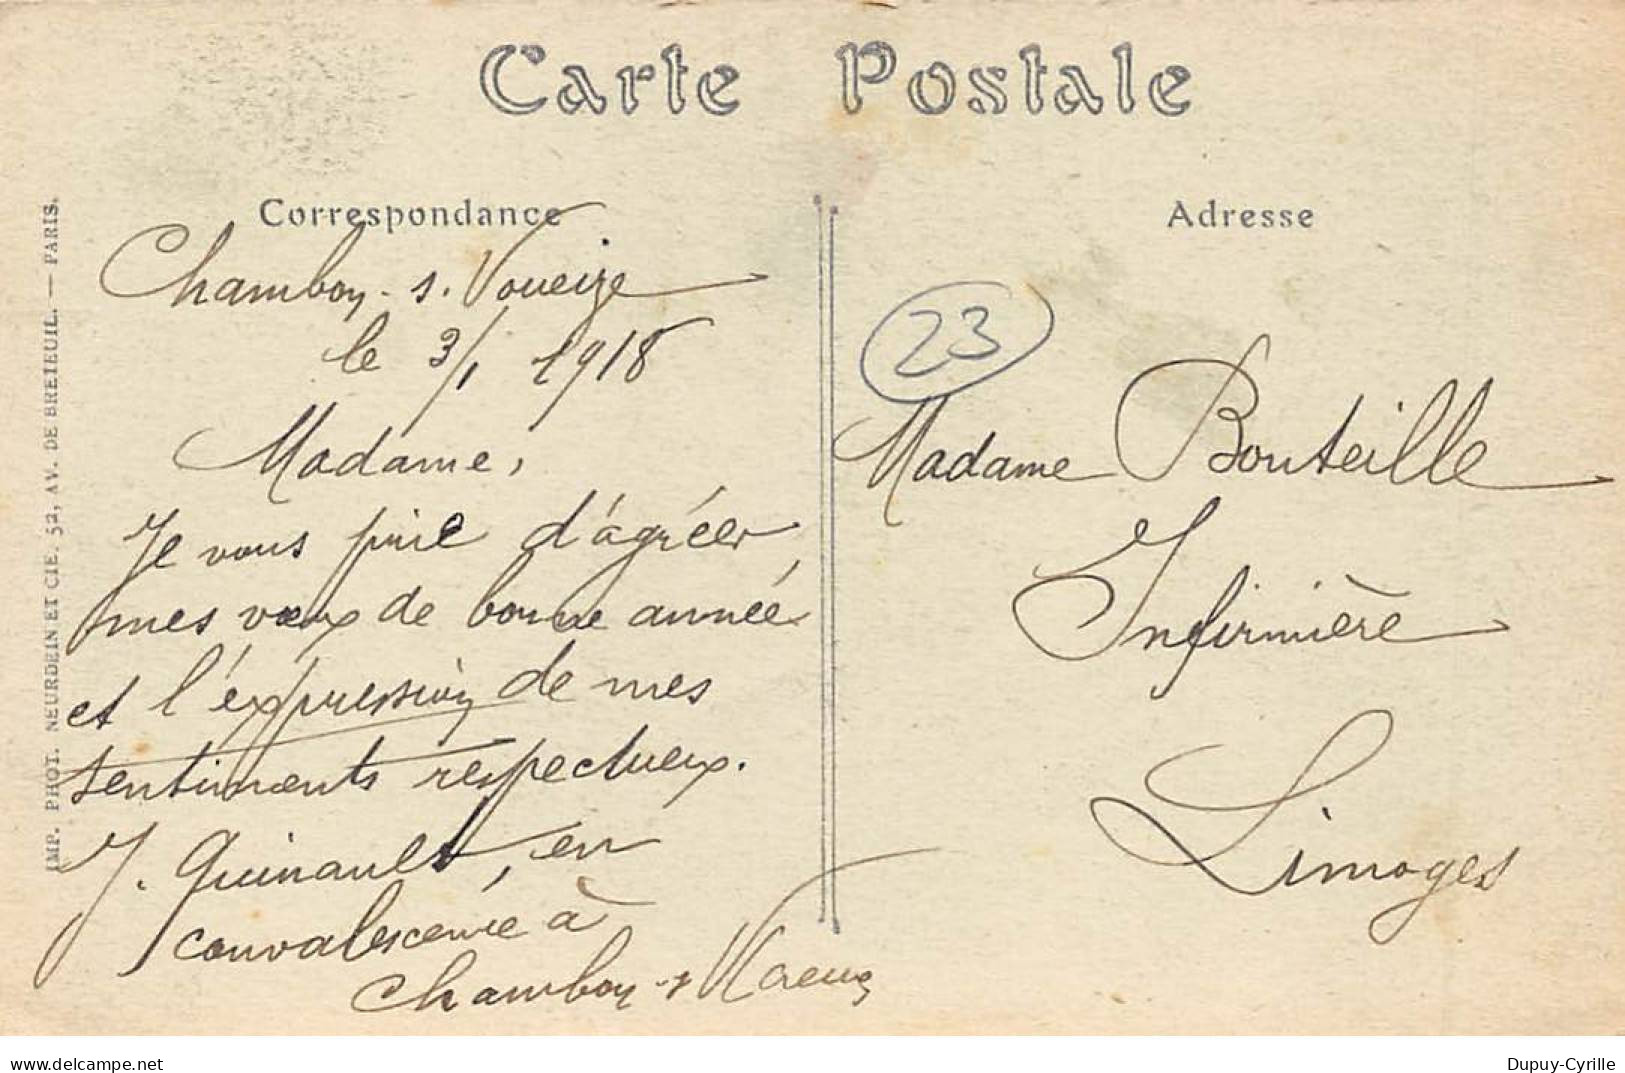 Carte Postale
Correspondance
Adresse
IMP. PHOT. NEURDEIN ET CIE. 52, AV. DE BRETEUIL. — PARIS.
Chambon - s. Voueize
le 3/1 1918
Madame,
Je vous prie d'agréer,
mes vœux de bonne année
et l'éxpression de mes
sentiments respectueux.
J. Guinault, en
convalescence à
Chambon - s
23
Madame Bouteille
Infirmière
Limoges
delcampe.net
Dupuy-Cyrille